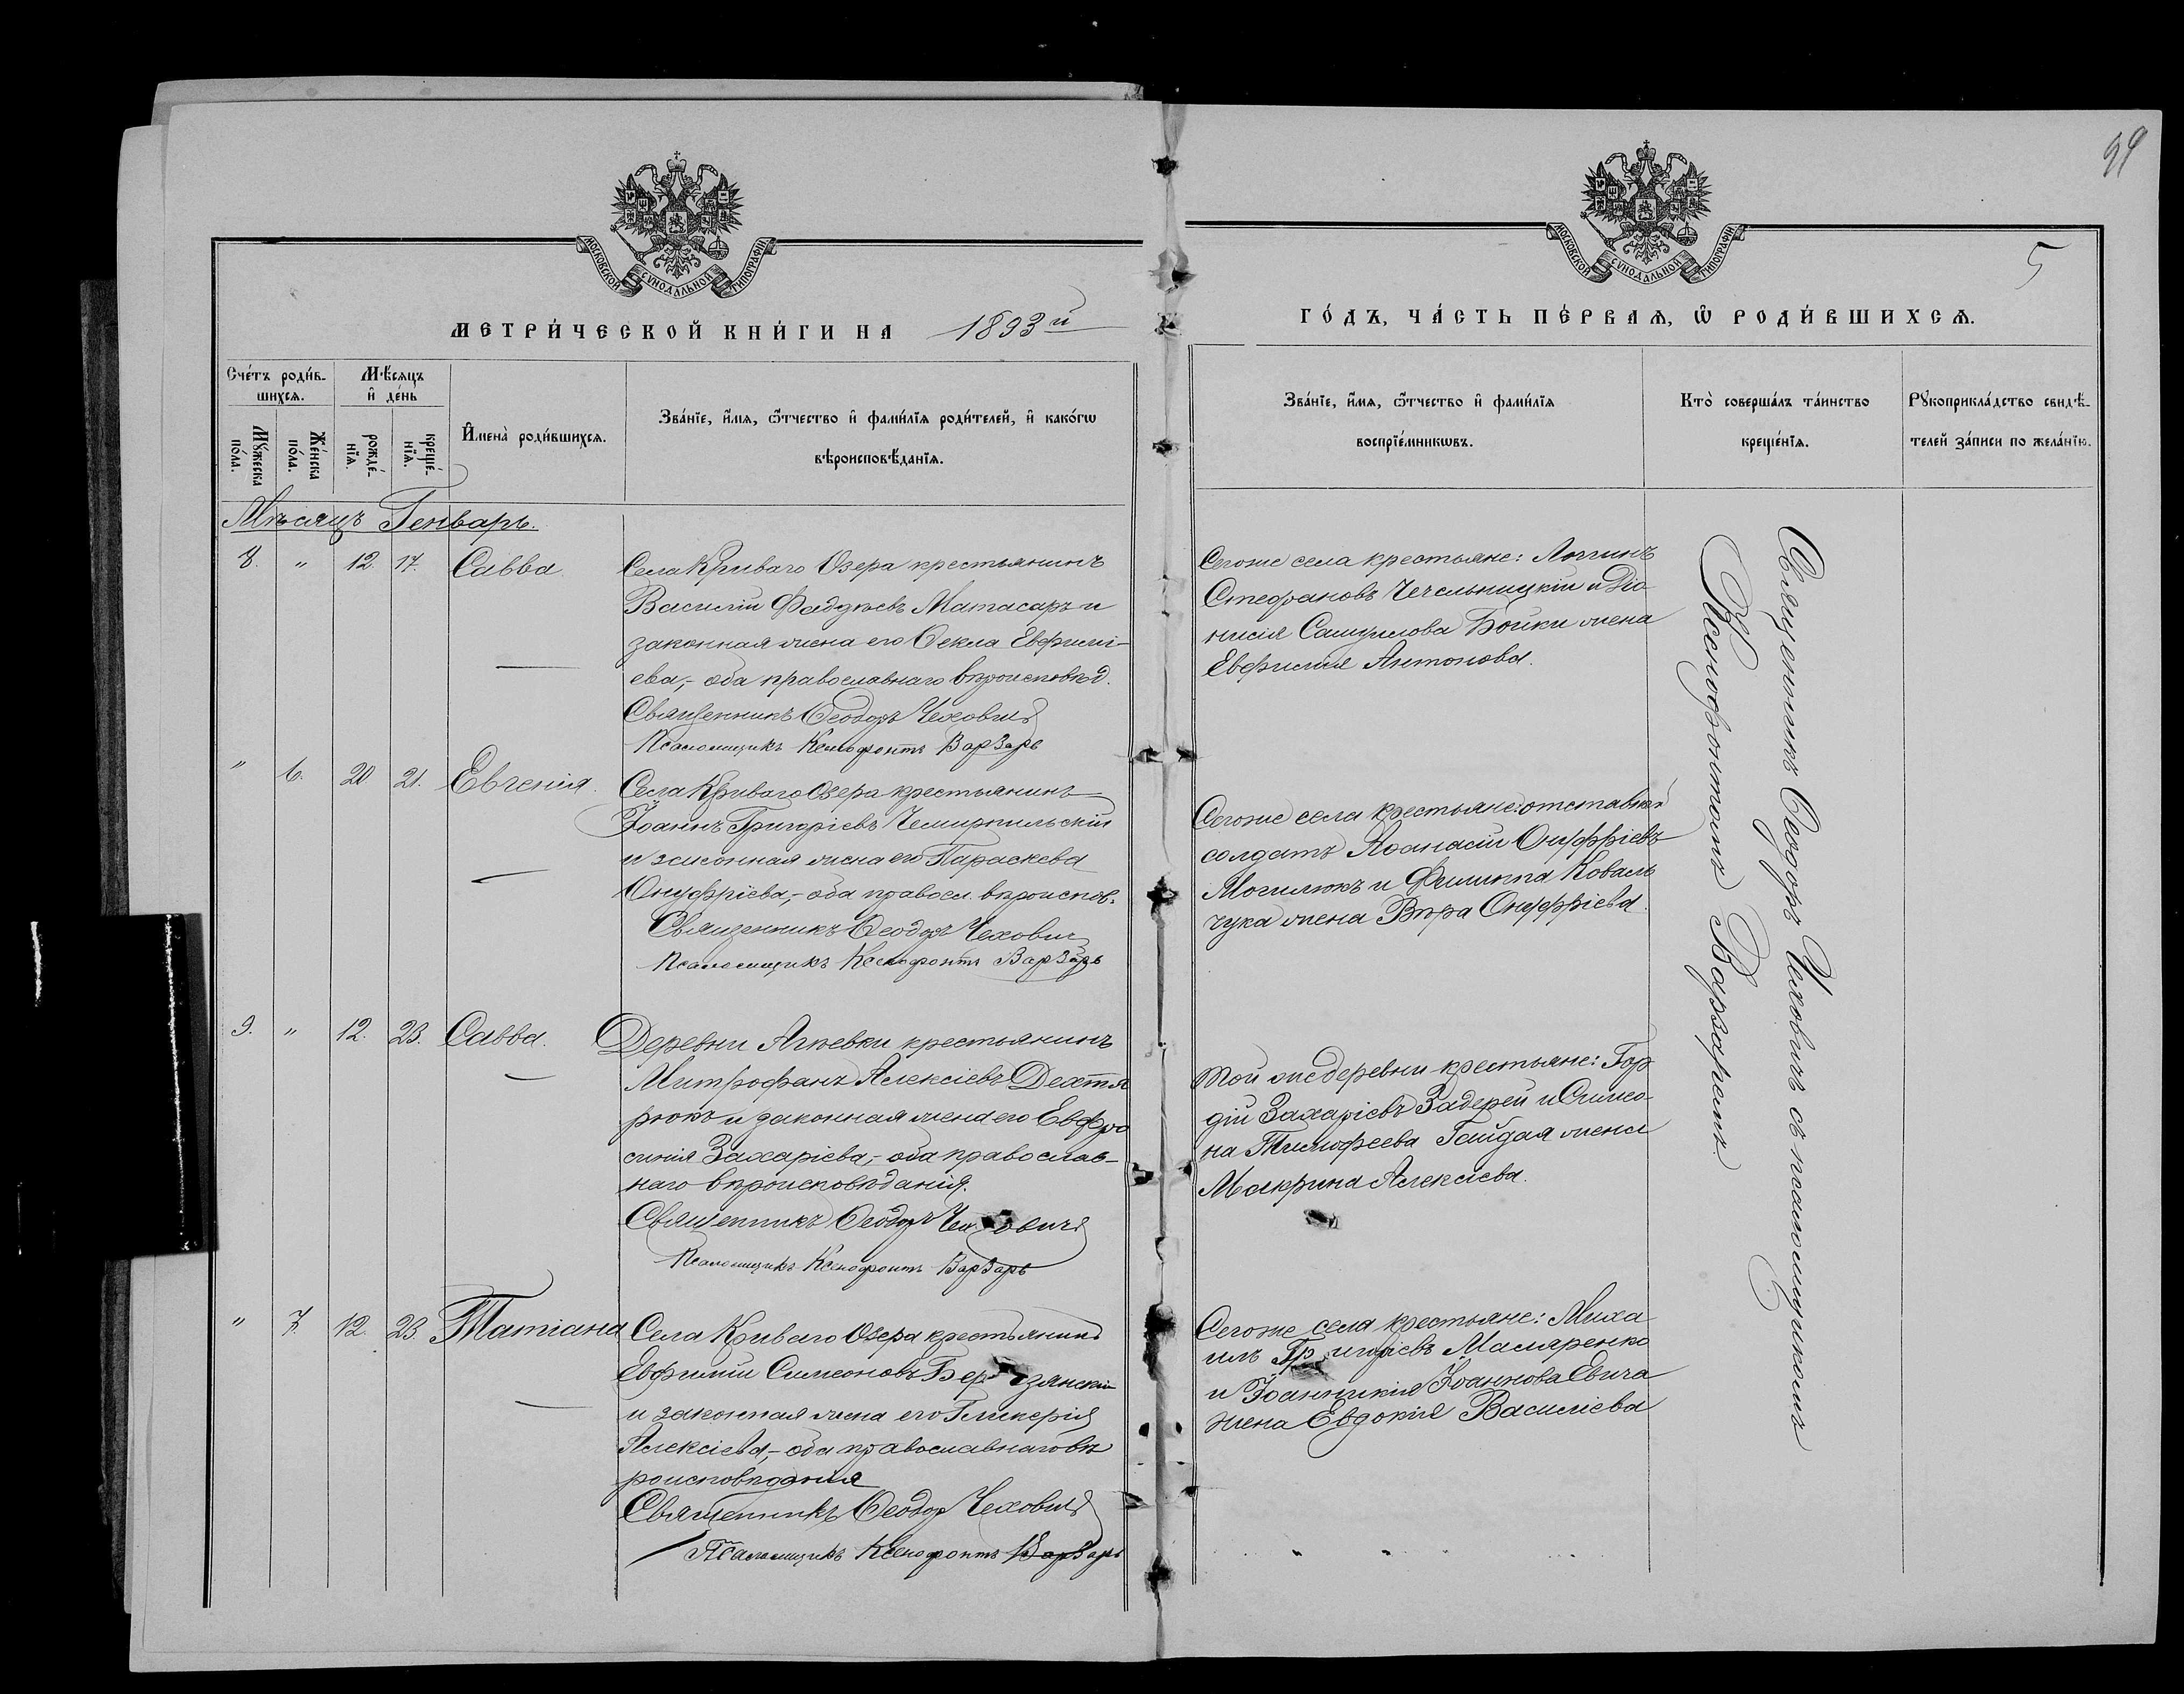 99
5
МОСКОВСКОЙ СѴНОДАЛЬНОЙ ТИПОГРАФІИ
МЕТРИ́ЧЕСКОЙ КНИ́ГИ НА 1893й
МОСКОВСКОЙ СѴНОДАЛЬНОЙ ТИПОГРАФІИ
ГО́ДЪ, ЧА́СТЬ ПЕ́РВАѦ, Ѡ РОДИ́ВШИХСѦ.
Сче́тъ роди́в-
шихсѧ.
Мꙋжеска
по́ла.
Же́нска
по́ла.
Мѣ́сяцъ
и҆ де́нь
рожде́-
нїѧ.
креще́-
нїѧ.
И҆мена̀ роди́вшихсѧ.
Зва́нїе, и҆́мѧ, ѻ҆́тчество и҆ фами́лїѧ роди́телей, и҆ како́гѡ
вѣроисповѣ́данїѧ.
Зва́нїе, и҆́мѧ, ѻ҆́тчество и҆ фами́лїѧ
воспрїе́мникѡвъ.
Кто̀ соверша́лъ та́инство
креще́нїѧ.
Рꙋкоприкла́дство свидѣ́-
телей за́писи по жела́нїю.
Мѣсяцъ Генварь.
8. " 12. 17. Савва
Села Криваго Озера крестьянинъ
Василій Фаддѣевъ Матасаръ и
законная жена его Ѳекла Евѳимі-
ева,- оба православнаго вѣроисповѣд.
Священникъ Ѳеодоръ Чеховичъ
Псаломщикъ Ксенофонтъ Варзарь
Сегоже села крестьяне: Логгинъ
Стефановъ Чечельницкій и Діо-
нисія Самуилова Бойки жена
Евѳимія Антонова.
" 6. 20 21. Евгенія.
Села Криваго Озера крестьянинъ
Іоаннъ Григоріевъ Чемирпильскій
и законная жена его Параскева
Онуфріева,- оба правосл. вѣроиспов.
Священникъ Ѳеодоръ Чехович
Псаломщикъ Ксенофонтъ Варзарь
Сегоже села крестьяне: отставной
солдатъ Аѳанасій Онуффріевъ
Могилюкъ и Филиппа Коваль
чука жена Вѣра Онуффріева.
9. " 12. 23. Савва.
Деревни Агѣевки крестьянинъ
Митрофанъ Алексіевъ Дехтя
рюкъ и законная жена его Евфро
синія Захаріева,- оба православ-
наго вѣроисповѣданія.
Священникъ Ѳеодоръ Чеховичъ
Псаломщикъ Ксенофонтъ Варзарь
Той же деревни крестьяне: Гор
дій Захаріевъ Задерей и Симео-
на Тимофеева Гайдая жена
Макрина Алексіева.
" 7. 12. 23. Татіана
Села Криваго Озера крестьянинъ
Евфимій Симеоновъ Березянскій
и законная жена его Гликерія
Алексіева,- оба православнаго вѣ
роисповѣданія
Священникъ Ѳеодоръ Чеховичъ
Псаломщикъ Ксенофонтъ Варзарь
Сегоже села крестьяне: Миха
илъ Григоріевъ Маляренко
и Іоанникія Іоаннова Евича
жена Евдокія Василіева
Священникъ Ѳеодоръ Чеховичъ съ псаломщикомъ
Ксенофонтомъ Варзаремъ